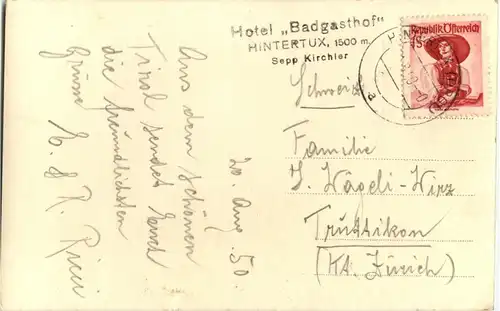 Hotel „Badgasthof“
HINTERTUX, 1500 m.
Sepp Kirchler
Republik Österreich
Schweiz
Familie
J. Nägeli-Wirz
Truttikon
(Kt. Zürich)
20. Aug. 50.
Aus dem schönen
Tirol sendet Euch
die freundlichsten
Grüsse